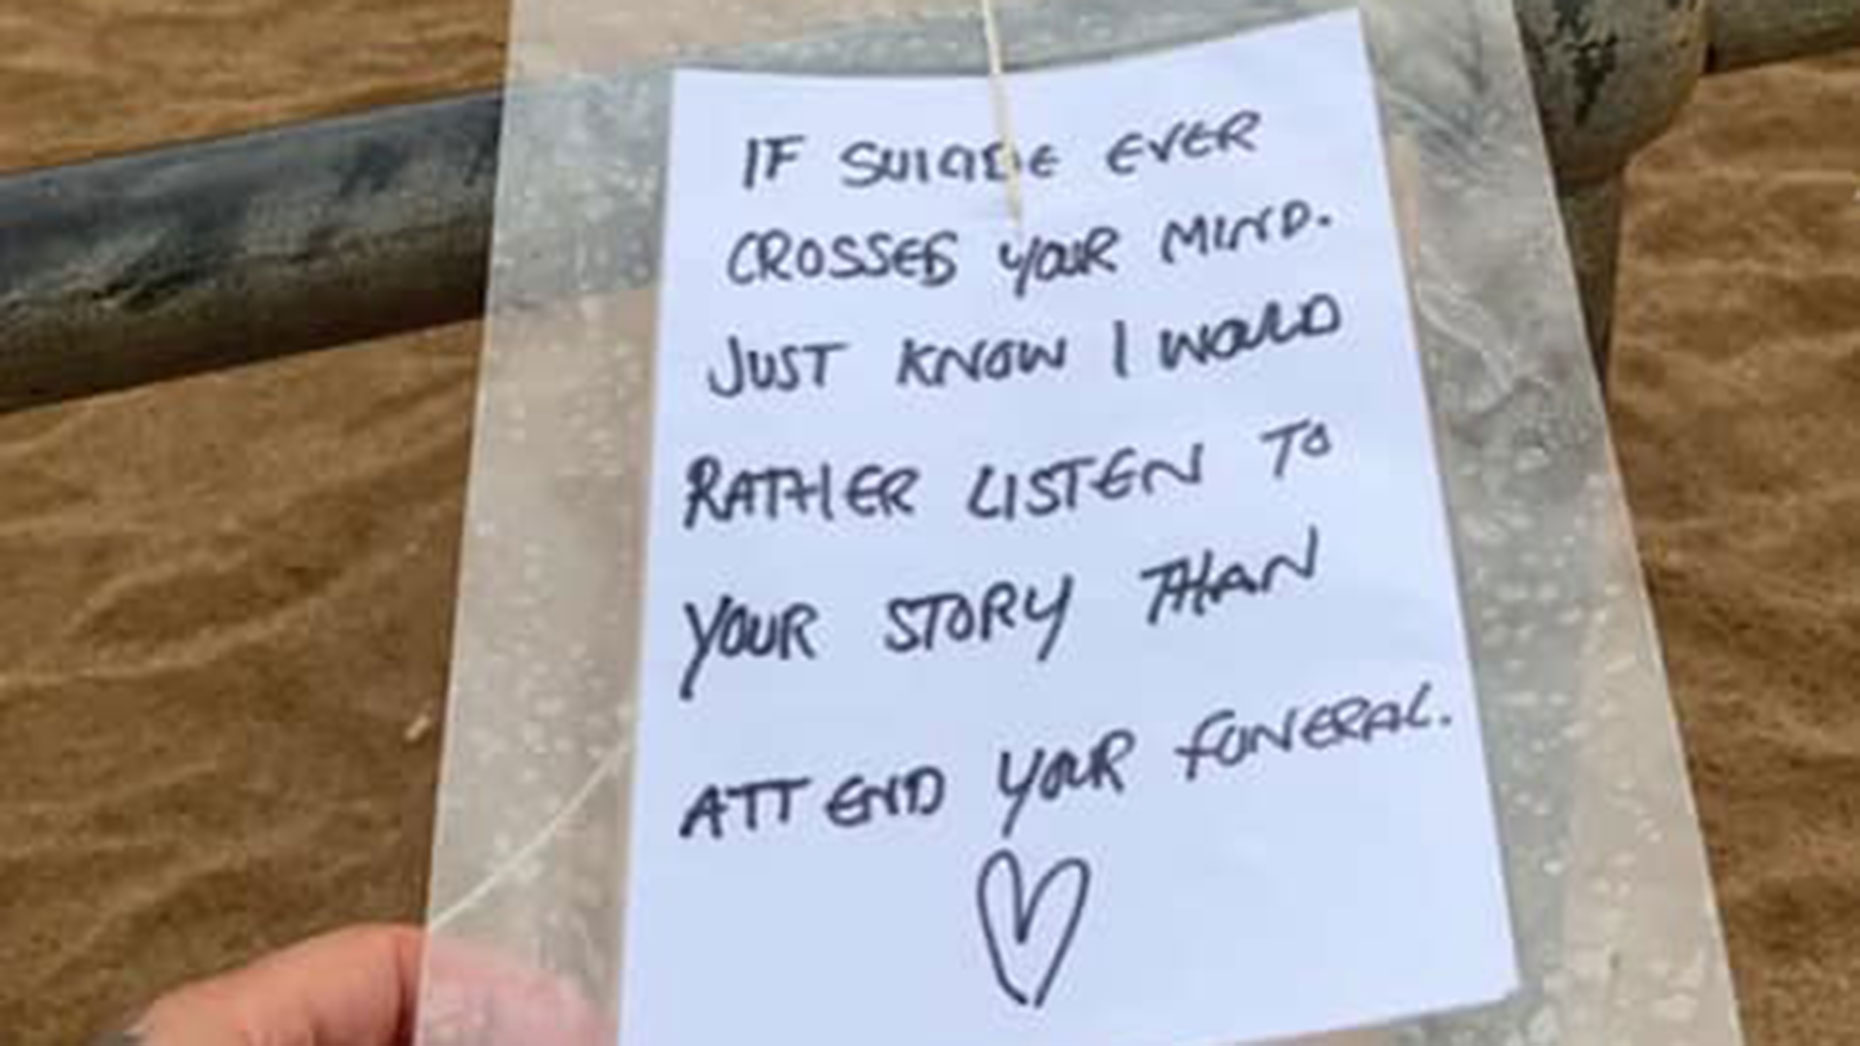 IF SUICIDE EVER
CROSSES YOUR MIND.
JUST KNOW I WOULD
RATHER LISTEN TO
YOUR STORY THAN
ATTEND YOUR FUNERAL.